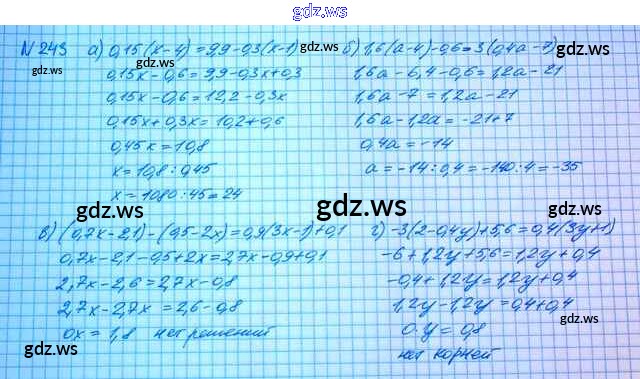 gdz.ws
N 243 а) 0,15(x-4)=9,9-0,3(x-1)
0,15x-0,6=9,9-0,3x+0,3
0,15x-0,6=12,2-0,3x
0,15x+0,3x=10,2+0,6
0,45x=10,8
x=10,8:0,45
x=1080:45=24
б) 1,6(a-4)-0,6=3(0,4a-7)
1,6a-6,4-0,6=1,2a-21
1,6a-7=1,2a-21
1,6a-1,2a=-21+7
0,4a=-14
a=-14:0,4=-140:4=-35
в) (0,7x-2,1)-(0,5-2x)=0,9(3x-1)+0,1
0,7x-2,1-0,5+2x=2,7x-0,9+0,1
2,7x-2,6=2,7x-0,8
2,7x-2,7x=2,6-0,8
0x=1,8 нет решений
г) -3(2-0,4y)+5,6=0,4(3y+1)
-6+1,2y+5,6=1,2y+0,4
-0,4+1,2y=1,2y+0,4
1,2y-1,2y=0,4+0,4
0·y=0,8
нет корней
gdz.ws
gdz.ws
gdz.ws
gdz.ws
gdz.ws
gdz.ws
gdz.ws
gdz.ws
gdz.ws
gdz.ws
gdz.ws